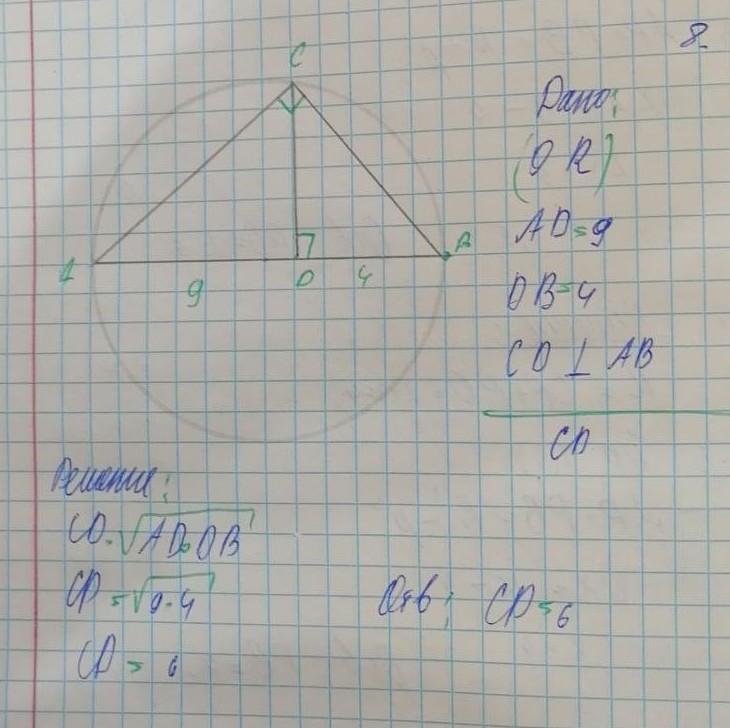 8
C
Дано:
(O R)
AD = 9
DB = 4
CD ⊥ AB
CD
A
B
9
D
4
Решение:
CD = √AD·DB
CD = √9·4
CD = 6
Отв: CD = 6